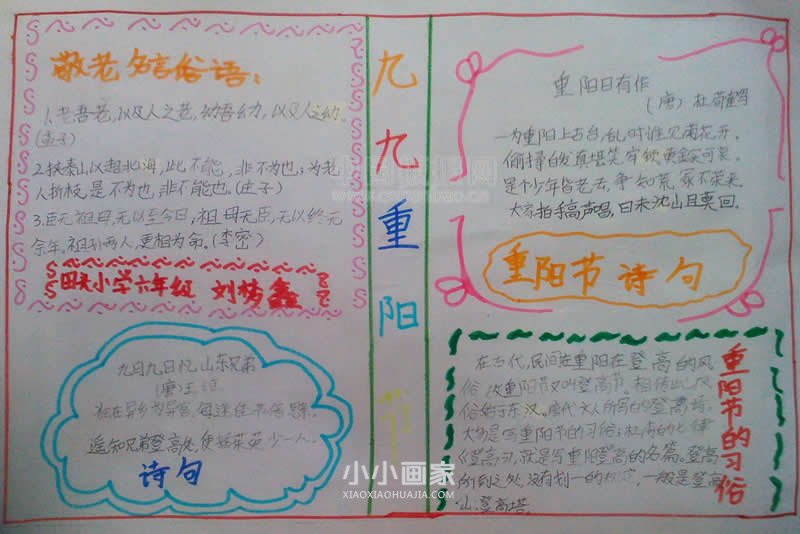 敬老名言俗语:
1.老吾老,以及人之老,幼吾幼,以及人之幼.
(孟子)
2.挟泰山以超北海,此不能,非不为也;为老
人折枝,是不为也,非不能也。(孟子)
3.臣无祖母,无以至今日;祖母无臣,无以终
余年。祖孙两人,更相为命。(李密)
小学六年级
九月九日忆山东兄弟
(唐)王维
独在异乡为异客,每逢佳节倍思亲。
遥知兄弟登高处,便插茱萸少一人。
诗句
九九重阳节
重阳日有作
(唐)杜荀鹤
一为重阳上古台,乱时谁见菊花开。
偷挦白发真堪笑,牢锁黄金实可哀。
是个少年皆老去,争知荒冢不荣来。
大家拍手高声唱,日未沈山且莫回。
重阳节诗句
重阳节的习俗
在古代,民间在重阳在登高的风
俗,故重阳节又叫登高节。相传此风
俗始于东汉。唐代文人所写的登高诗,
大多是写重阳节的习俗;杜甫的七律
《登高》,就是写重阳登高的名篇。登高
所到之处,没有划一的规定,一般是登高
山、登高塔.
小小画家
XIAOXIAOHUAJIA.COM